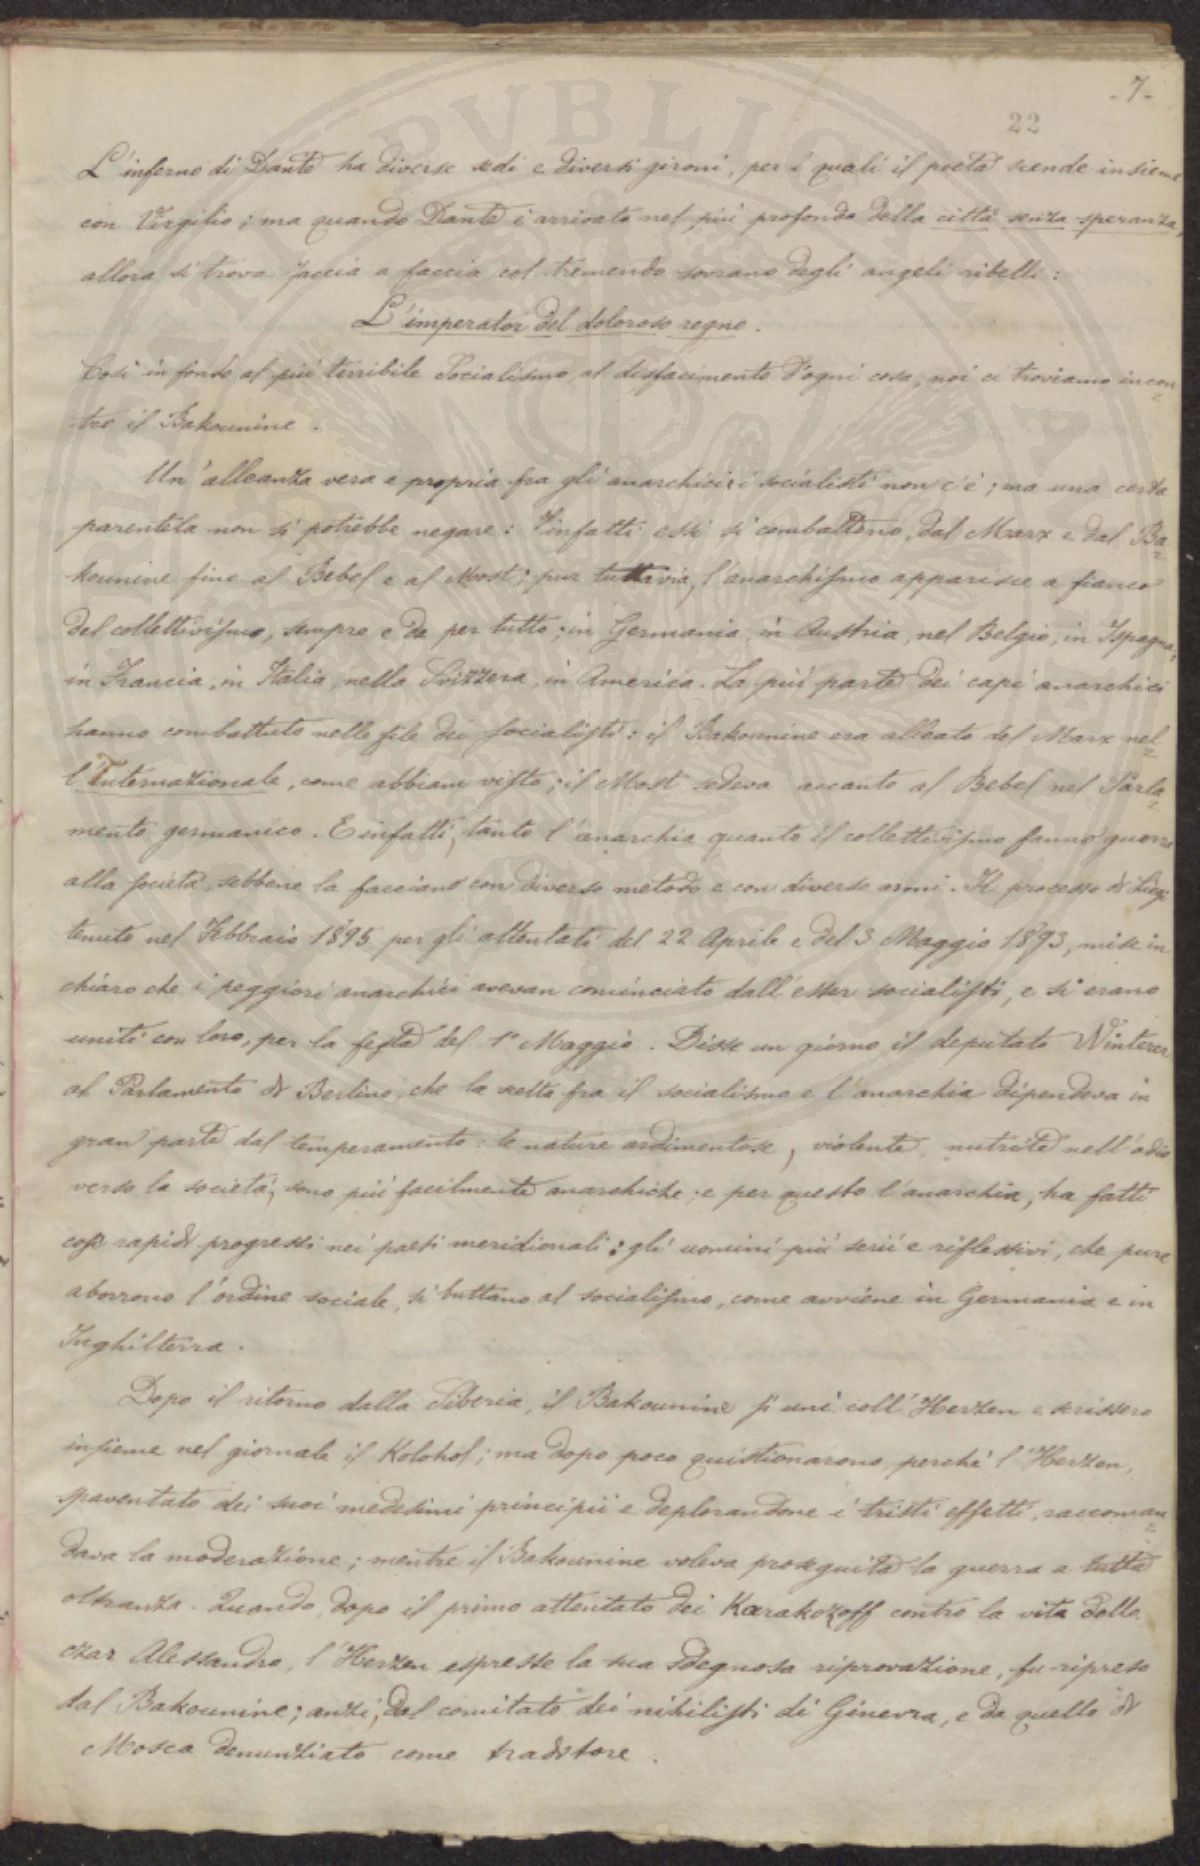 -7-
22
L'inferno di Dante ha diverse sedi e diversi gironi, per i quali il poeta scende insieme
con Virgilio; ma quando Dante è arrivato nel più profondo della città senza speranza,
allora si trova faccia a faccia col tremendo sovrano degli angeli ribelli:
L'imperator del doloroso regno.
Così in fondo al più terribile Socialismo, al disfacimento d'ogni cosa, noi ci troviamo incon=
tro il Bakounine.
Un'alleanza vera e propria fra gli anarchici e i socialisti non c'è; ma una certa
parentela non si potrebbe negare: infatti essi si combattono, dal Marx e dal Ba=
kounine fino al Bebel e al Moost; pur tuttavia, l'anarchismo apparisce a fianco
del collettivismo, sempre e da per tutto; in Germania, in Austria, nel Belgio, in Ispagna,
in Francia, in Italia, nella Svizzera, in America. La più parte dei capi anarchici
hanno combattuto nelle file dei socialisti: il Bakounine era alleato del Marx nel=
l'Internazionale, come abbiam visto; il Most sedeva accanto al Bebel nel Parla=
mento germanico. E infatti, tanto l'anarchia quanto il collettivismo fanno guerra
alla società, sebbene la facciano con diverso metodo e con diverse armi. Il processo di Liegi
tenuto nel Febbraio 1895 per gli attentati del 22 Aprile e del 3 Maggio 1893, mise in
chiaro che i peggiori anarchici avevan cominciato dall'esser socialisti, e si erano
uniti con loro, per la festa del 1° Maggio. Disse un giorno il deputato Winterer
al Parlamento di Berlino, che la scelta fra il socialismo e l'anarchia dipendeva in
gran parte dal temperamento: le nature ardimentose, violente, nutrite nell'odio
verso la società, sono più facilmente anarchiche; e per questo l'anarchia, ha fatti
così rapidi progressi nei paesi meridionali: gli uomini più serii e riflessivi, che pure
aborrono l'ordine sociale, si buttano al socialismo, come avviene in Germania e in
Inghilterra.
Dopo il ritorno dalla Siberia, il Bakounine si unì coll'Herzen e scrissero
insieme nel giornale il Kolokol; ma dopo poco quistionarono, perchè l'Herzen,
spaventato dei suoi medesimi principii e deplorandone i tristi effetti, raccoman=
dava la moderazione; mentre il Bakounine voleva proseguita la guerra a tutta
oltranza. Quando, dopo il primo attentato dei Karakozoff contro la vita dello
czar Alessandro, l'Herzen espresse la sua sdegnosa riprovazione, fu ripreso
dal Bakounine; anzi, dal comitato dei nihilisti di Ginevra, e da quello di
Mosca denunziato come traditore.